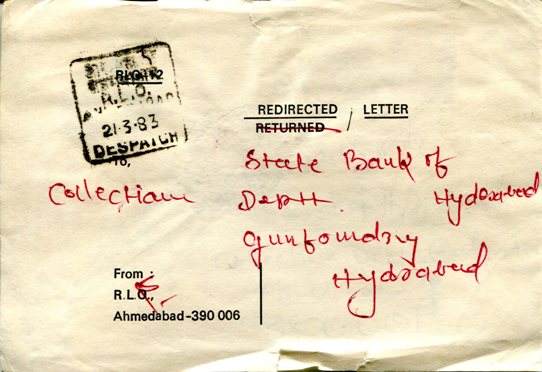 RLO-12
R.L.O.
21·3·83
DESPATCH
REDIRECTED / LETTER
RETURNED
To,
State Bank of Hyderabad
Collection Deptt.
Gunfoundry
Hyderabad
From :
R.L.O.,
Ahmedabad-390 006